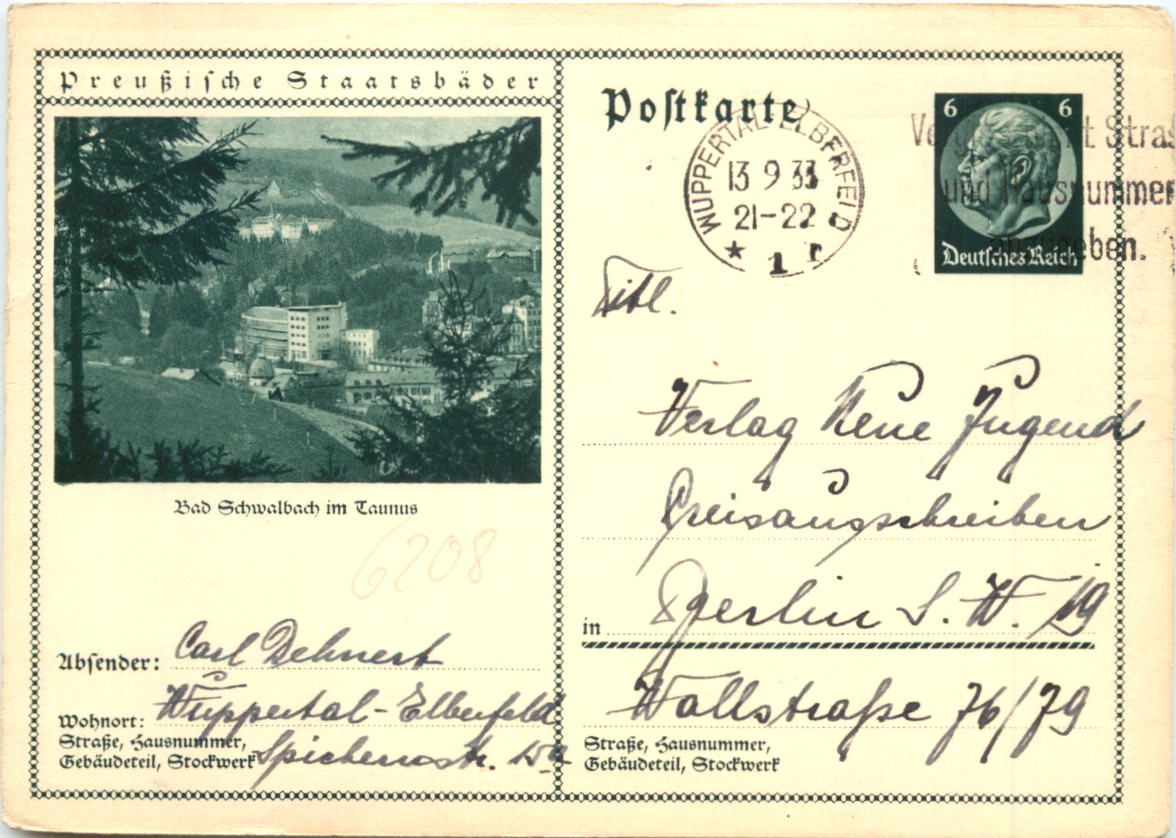 Preußische Staatsbäder
Bad Schwalbach im Taunus
6208
Absender: Carl Dehnert
Wohnort: Wuppertal-Elberfeld
Straße, Hausnummer,
Gebäudeteil, Stockwerk Spichernstr.
Postkarte
WUPPERTAL-ELBERFELD
13 9 33
21-22
★ 1 r
6 6
Deutsches Reich
und Hausnummer
Titl.
Verlag Neue Jugend
Preisausschreiben
in Berlin S. W. 19
Wallstraße 76/79
Straße, Hausnummer,
Gebäudeteil, Stockwerk